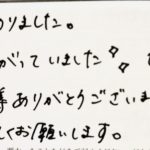 りました。
がっていました
ありがとうございま
くお願いします。